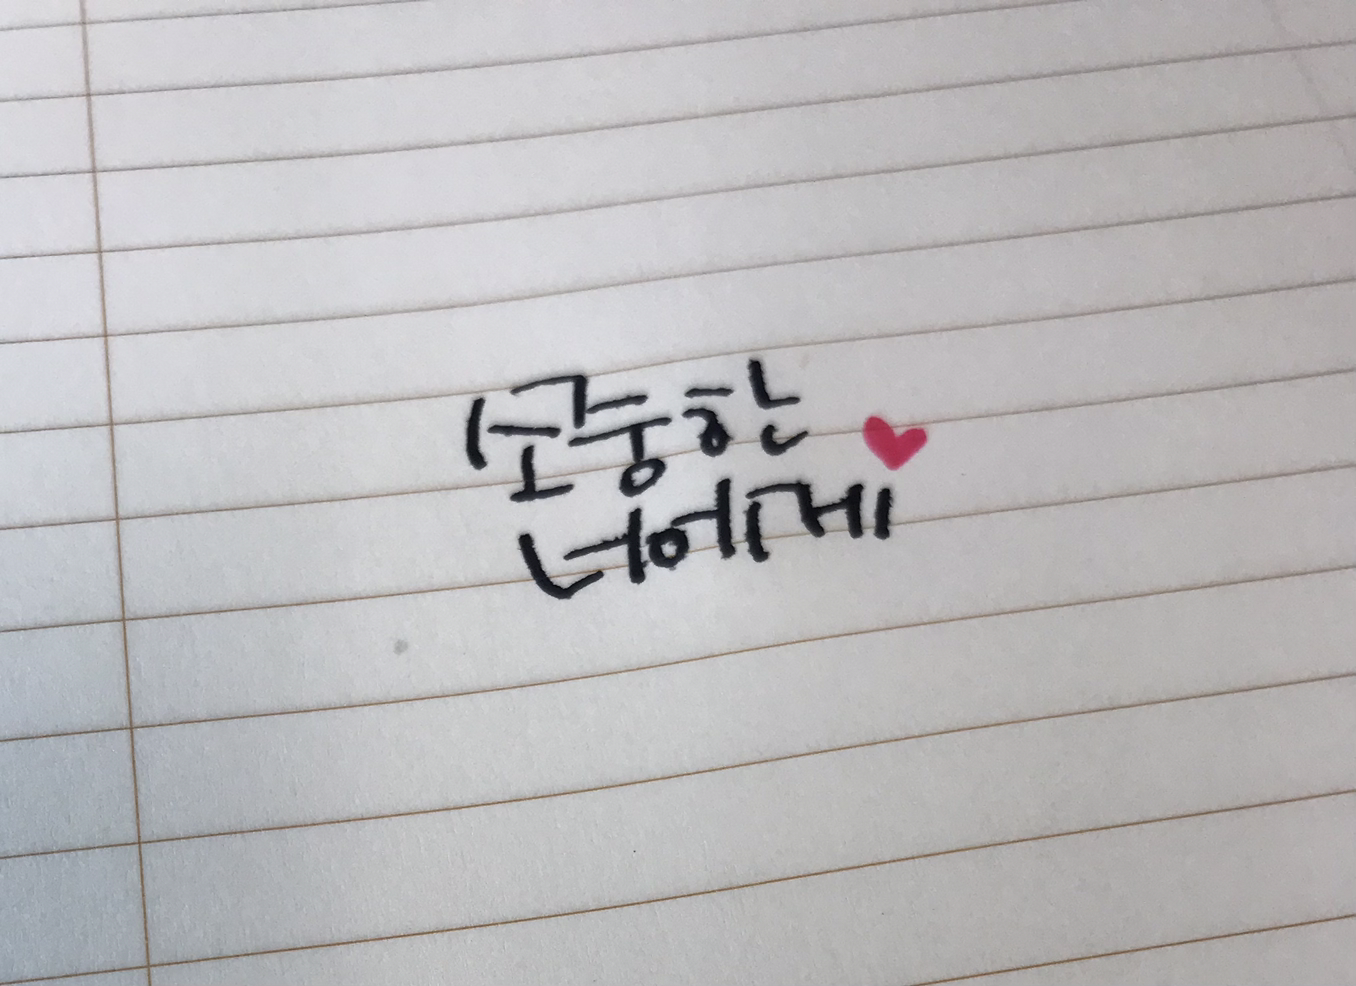 소중한
너에게